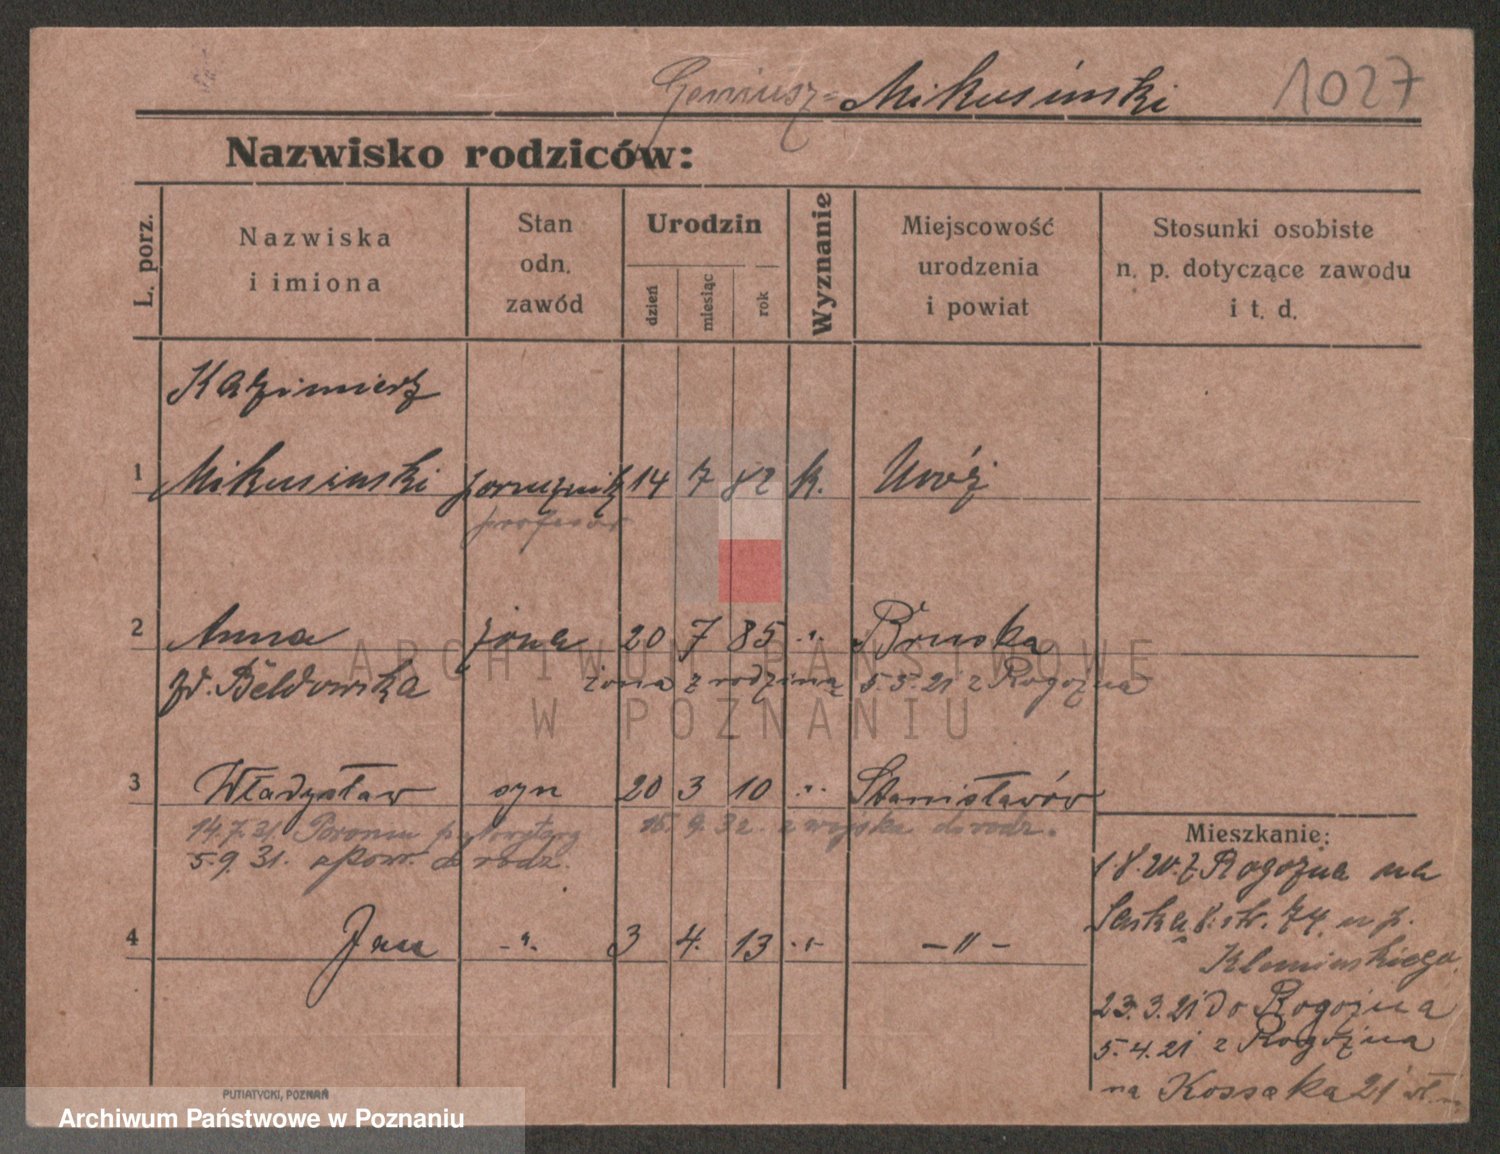 Geniusz= Mikusinski 1027
Nazwisko rodziców:
L. porz.
Nazwiska
i imiona
Stan
odn.
zawód
Urodzin
dzień
miesiąc
rok
Wyznanie
Miejscowość
urodzenia
i powiat
Stosunki osobiste
n. p. dotyczące zawodu
i t. d.
Kazimierz
1 Mikusinski porucznik 14 7 82 k. Uróż
profesor
2 Anna żona 20 7 85 -"- Bruska
zd. Bełdowska żona z rodziną 5.5.21 z Rogoźna
3 Władysław syn 20 3 10 -"- Stanisławów
14.7.31. 16.9.32. z wojska do rodz.
5.9.31. spow. do rodz.
4 Jan -"- 3 4. 13 -"- -"-
Mieszkanie:
1.8.20. z Rogoźna na
8. str. 74. u p.
23.3.21 do Rogoźna
5.4.21 z Rogoźna
na Kossaka 21
PUTIATYCKI, POZNAŃ
ARCHIWUM PAŃSTWOWE
W POZNANIU
Archiwum Państwowe w Poznaniu